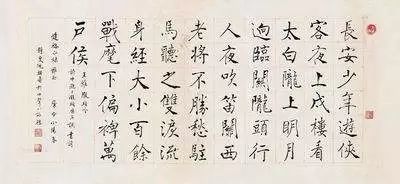 長安少年遊俠
客夜上戍樓看
太白隴上明月
迥臨關隴頭行
人夜吹笛關西
老將不勝愁駐
馬聽之雙淚流
身經大小百餘
戰麾下偏裨萬
戶侯